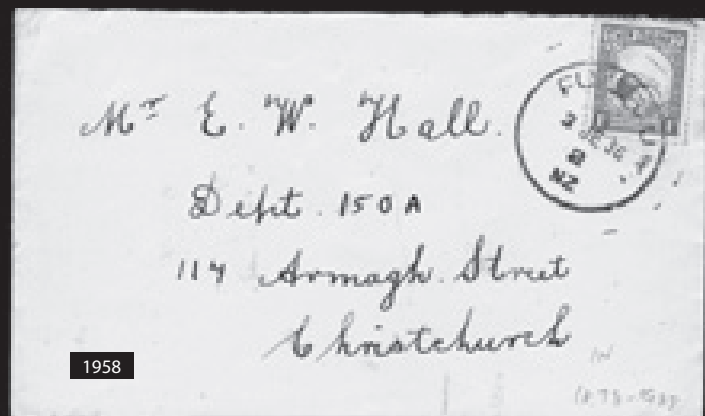 Mr E. W. Hall.
Dept. 150A
114 Armagh. Street
Christchurch
NZ
1958